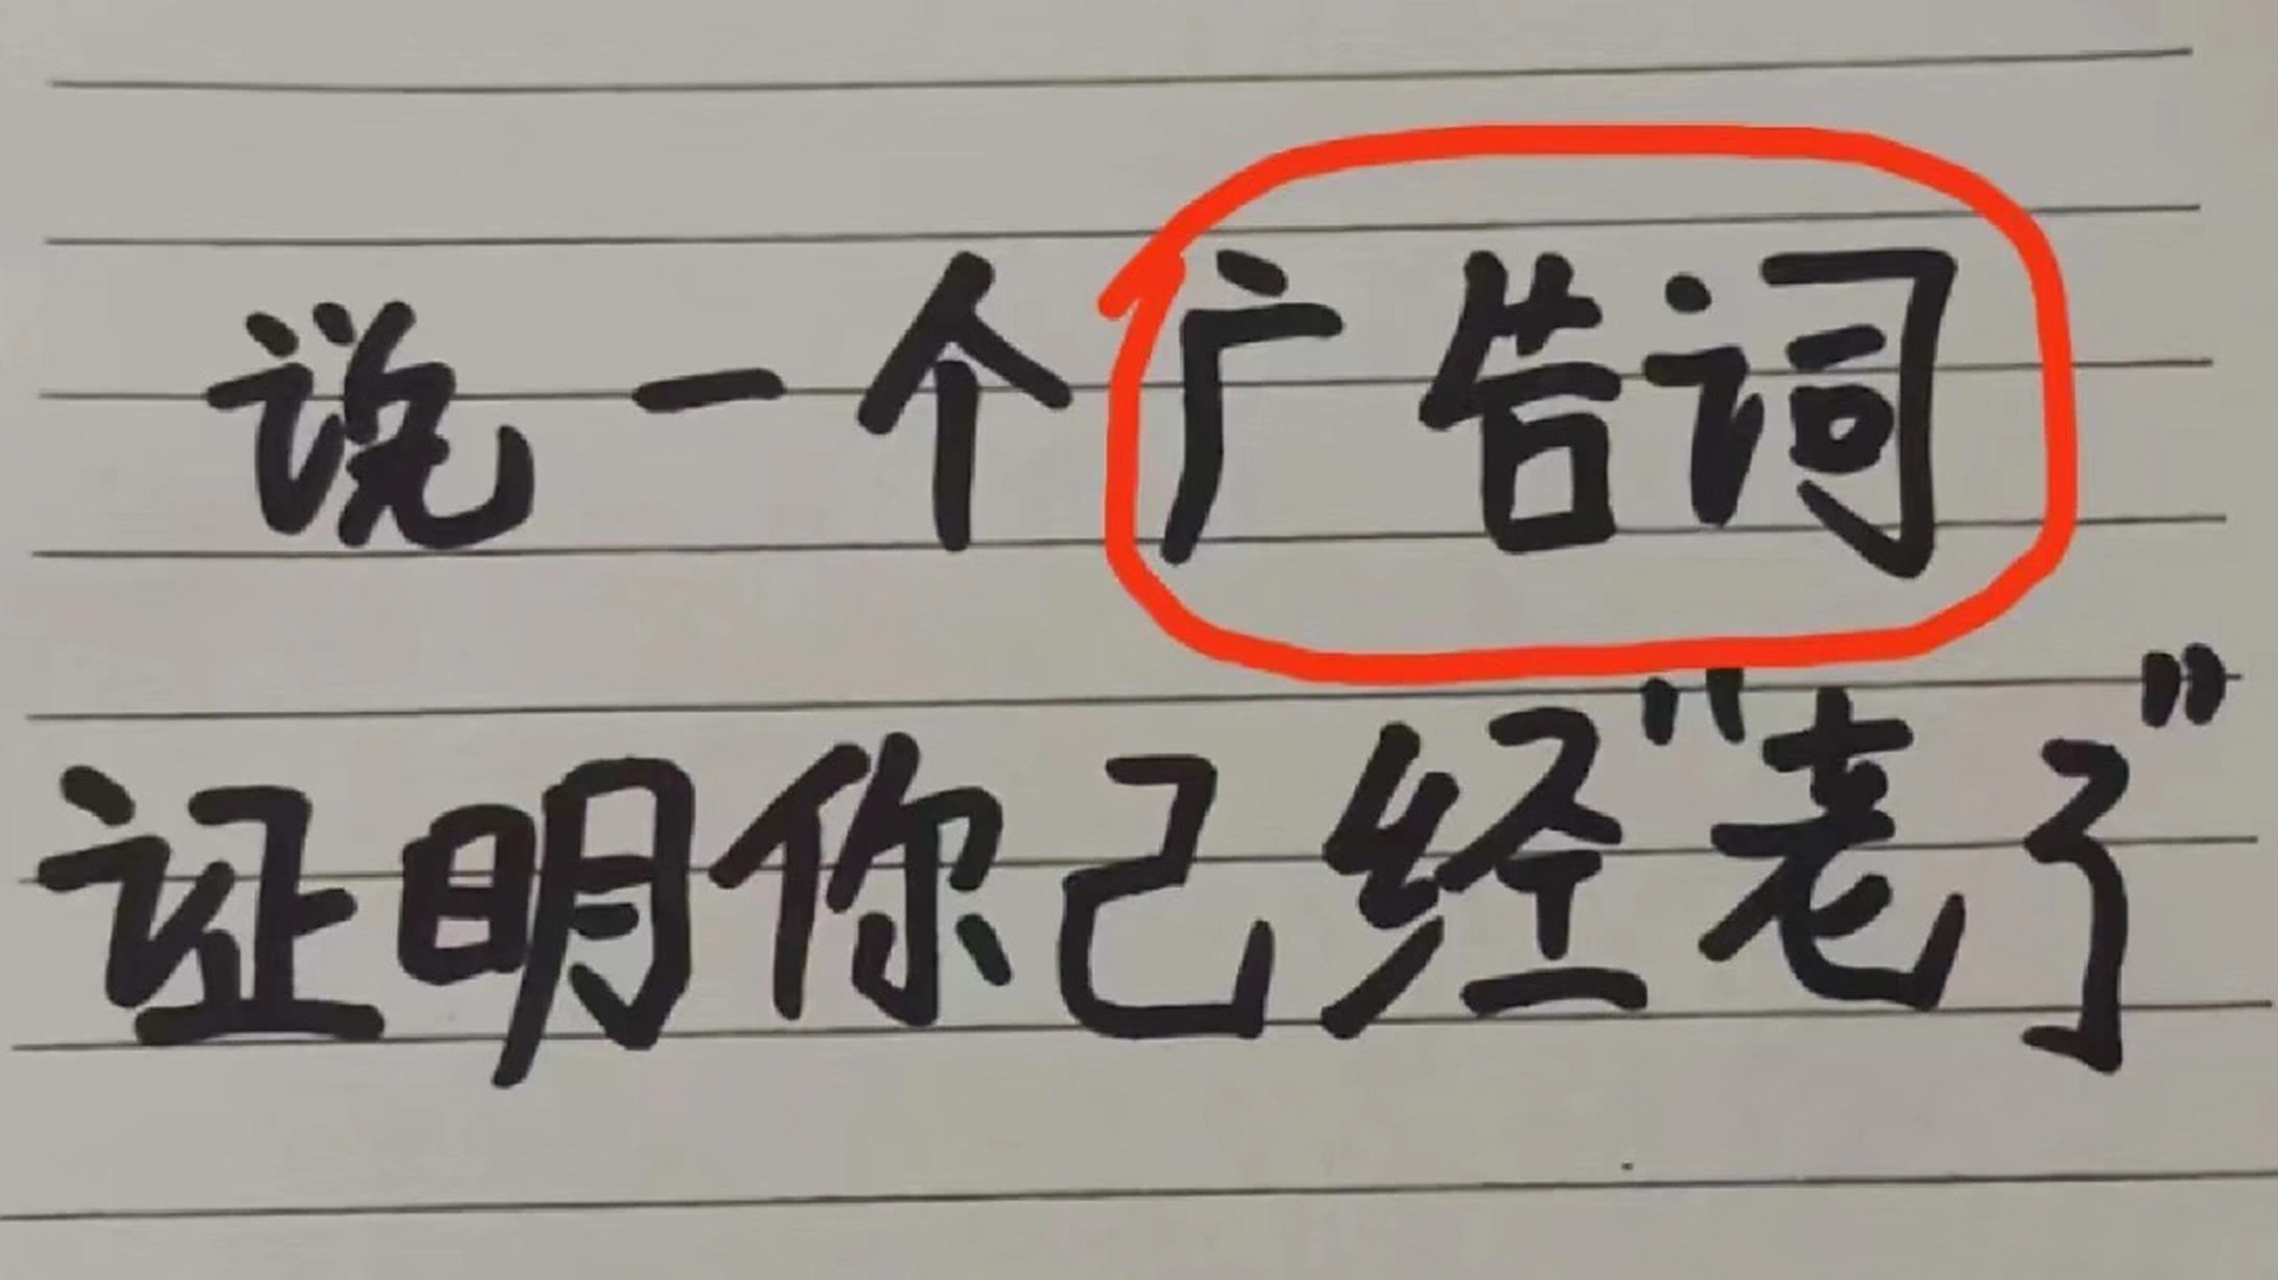 说一个广告词
证明你已经"老了"